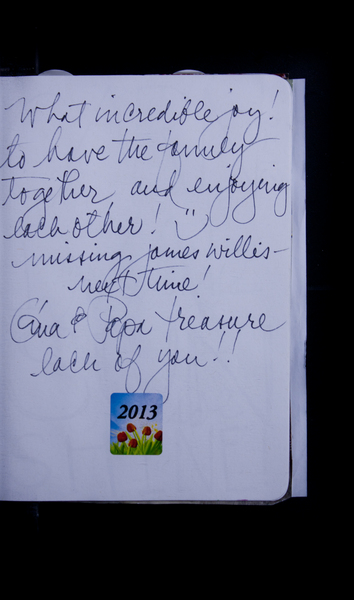 What incredible joy!
to have the family
together, and enjoying
each other! :)
missing James Willis-
next time!
& Papa treasure
each of you!!
2013